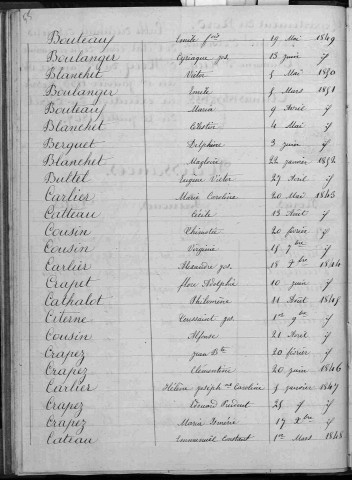 Bouteau Emile fois 19 Mai 1849
Boulanger Cyriaque jos. 13 juin y
Blanchet Victor 5 Mai 1850
Boulanger Emile 8 Mars 1851
Bouteau Maria 9 Avril y
Blanchet Célestin 4 Mai y
Berguet Delphine 3 juin y
Blanchet Magloire 22 janvier 1852
Bultel Eugene Victor 27 Avril y
Carlier Marie Caroline 20 Mai 1843
Catteau Cécile 13 Août y
Cousin Phimotée 20 février y
Cousin Virginie 18 7bre y
Carlier Alexandre jos. 18 Xbre 1844
Crapet flore Adolphie 10 juin y
Cathalot Philomène 11 Août 1845
Citerne Toussaint jos 1er 9bre y
Cousin Alfonse 21 Avril y
Crapez jean Bte 20 février y
Crapez Clementine 20 juin 1846
Carlier Hélène joseph Caroline 5 janvier 1847
Crapez Edouard Prudent 25 y y
Crapez Maria Ismérie 17 Xbre y
Cateau Emmanuel Constant 1er Mars 1848